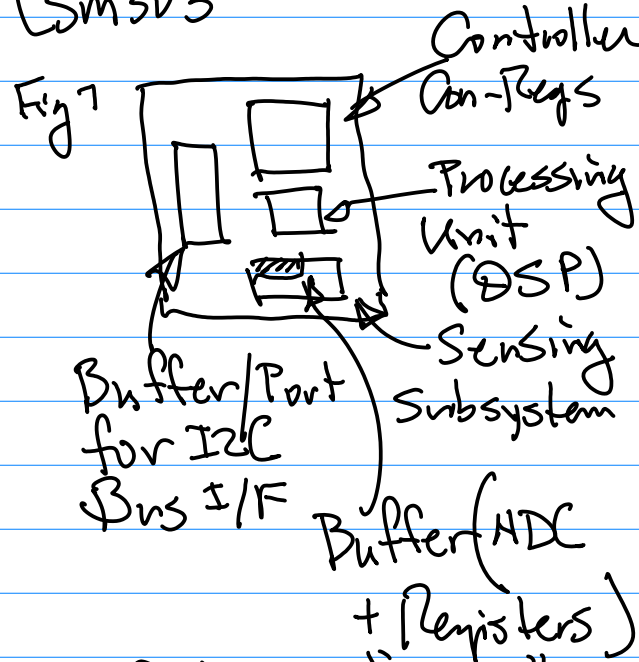 LSM303
Fig 1
Controller
Con-Regs
Processing
Unit
(DSP)
Sensing
Subsystem
Buffer/Port
for I2C
Bus I/F
Buffer(ADC
+ Registers)